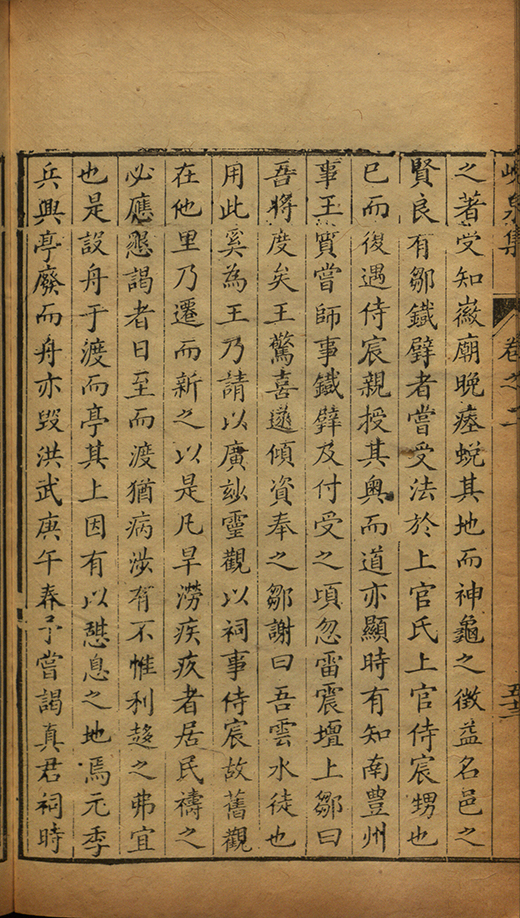 峴泉集 卷之二
之著受知徽廟晚瘞蛻其地而神龜之徵益名邑之
賢良有鄒鐡臂者嘗受法於上官氏上官侍宸甥也
已而後遇侍宸親授其奥而道亦顯時有知南豊州
事王實嘗師事鐡臂及付受之頃忽雷震壇上鄒曰
吾將度矣王驚喜遂傾資奉之鄒謝曰吾雲水徒也
用此奚為王乃請以廣玅靈觀以祠事侍宸故舊觀
在他里乃遷而新之以是凡旱澇疾疫者居民禱之
必應懇謁者日至而渡猶病涉有不惟利趍之弗宜
也是設舟于渡而亭其上因有以憇息之地焉元季
兵興亭廢而舟亦毁洪武庚午春予嘗謁真君祠時